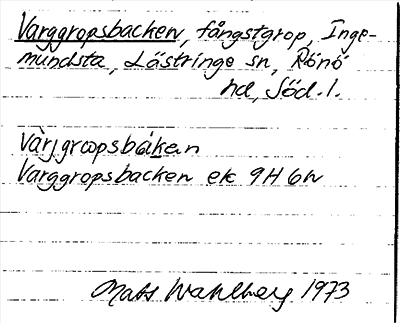 Varggropsbacken, fångstgrop, Inge-
mundsta, Lästringe sn, Rönö
hd, Söd. l.
Várjgrωpsbákan
Varggropsbacken ek 9H 6h
Mats Wahlberg 1973